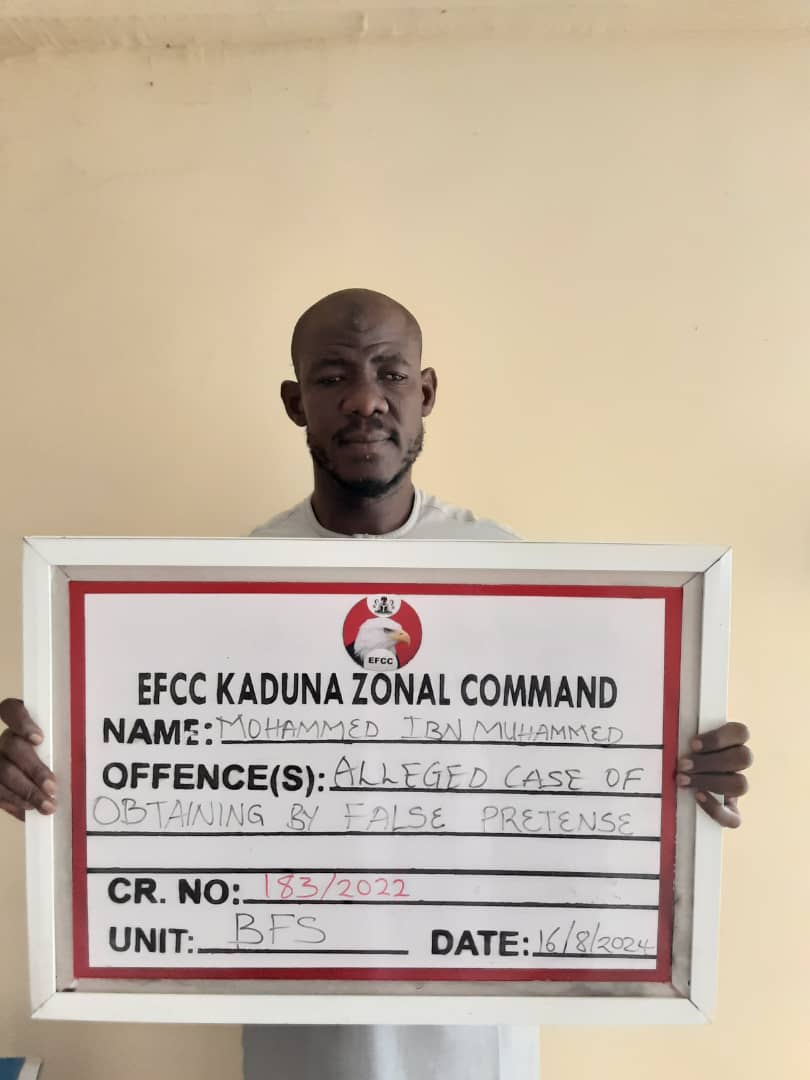 EFCC
EFCC KADUNA ZONAL COMMAND
NAME: MOHAMMED IBN MUHAMMED
OFFENCE(S): ALLEGED CASE OF
OBTAINING BY FALSE PRETENSE
CR. NO: 183/2022
UNIT: BFS DATE: 16/8/2024